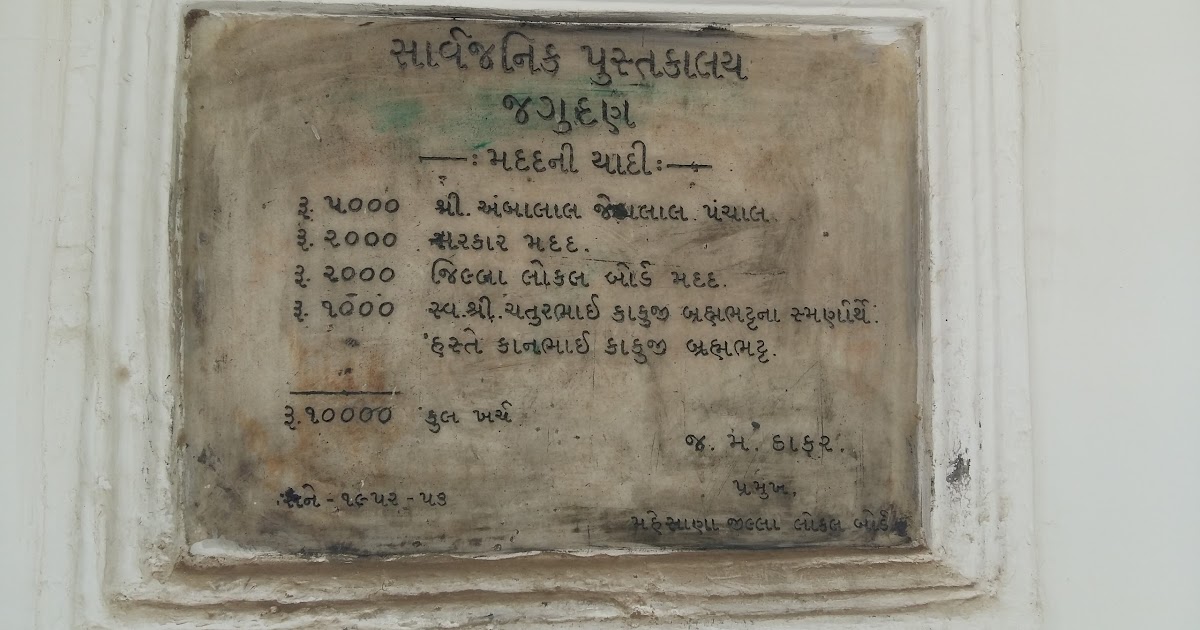 સાર્વજનિક પુસ્તકાલય
જગુદણ
—: મદદની યાદી :—
રૂ. ૫૦૦૦ શ્રી. અંબાલાલ પંચાલ
રૂ. ૨૦૦૦ સરકાર મદદ.
રૂ. ૨૦૦૦ જિલ્લા લોકલ બોર્ડ મદદ.
રૂ. ૧૦૦૦ સ્વ.શ્રી.ચતુરભાઈ કાકુજી બ્રહ્મભટ્ટના સ્મર્ણાર્થે:
હસ્તે કાનભાઈ કાકુજી બ્રહ્મભટ્ટ.
રૂ.૧૦૦૦૦ કુલ ખર્ચ
જ. મ. ઠાકર.
પ્રમુખ.
સને - ૧૯૫૨ - ૫૩
મહેસાણા જીલ્લા લોકલ બોર્ડ